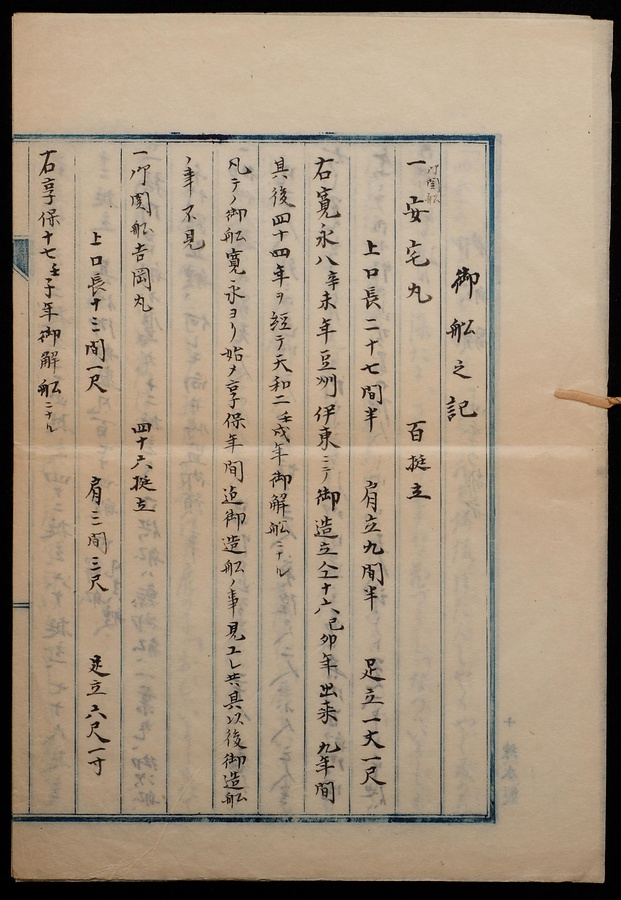 御船之記
一 御関船 安宅丸 百挺立
上口長二十七間半 肩立九間半 足立一丈一尺
右寛永八辛未年豆州伊東ニテ御造立仝十六己卯年出来 九年間
其後四十四年ヲ経テ天和二壬戌年御解船ニナル
凡テノ御船寛永ヨリ始メ享保年間迄御造船ノ事見エレ共其以後御造船
ノ事不見
一御関船吉岡丸 四十六挺立
上口長十三間一尺 肩三間三尺 足立六尺一寸
右享保十七壬子年御解船ニナル